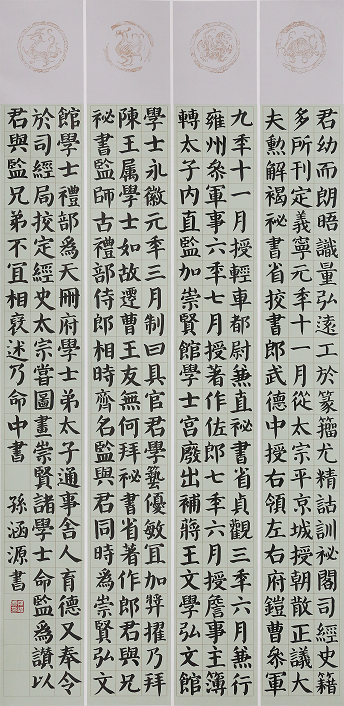 君幼而朗晤識量弘遠工於篆籀尤精詁訓祕閣司經史籍
多所刊定義寧元秊十一月從太宗平京城授朝散正議大
夫勳解褐祕書省挍書郎武德中授右領左右府鎧曹叅軍
九秊十一月授輕車都尉兼直祕書省貞觀三秊六月兼行
雍州叅軍事六秊七月授著作佐郎七秊六月授詹事主簿
轉太子内直監加崇賢館學士宮廢出補蔣王文學弘文館
學士永徽元秊三月制曰具官君學藝優敏宜加奬擢乃拜
陳王属學士如故遷曹王友無何拜祕書省著作郎君與兄
祕書監師古禮部侍郎相時齊名監與君同時爲崇賢弘文
館學士禮部爲天冊府學士弟太子通事舍人育德又奉令
於司經局挍定經史太宗嘗圖畫崇賢諸學士命監爲讚以
君與監兄弟不宜相襃述乃命中書 孫涵源書